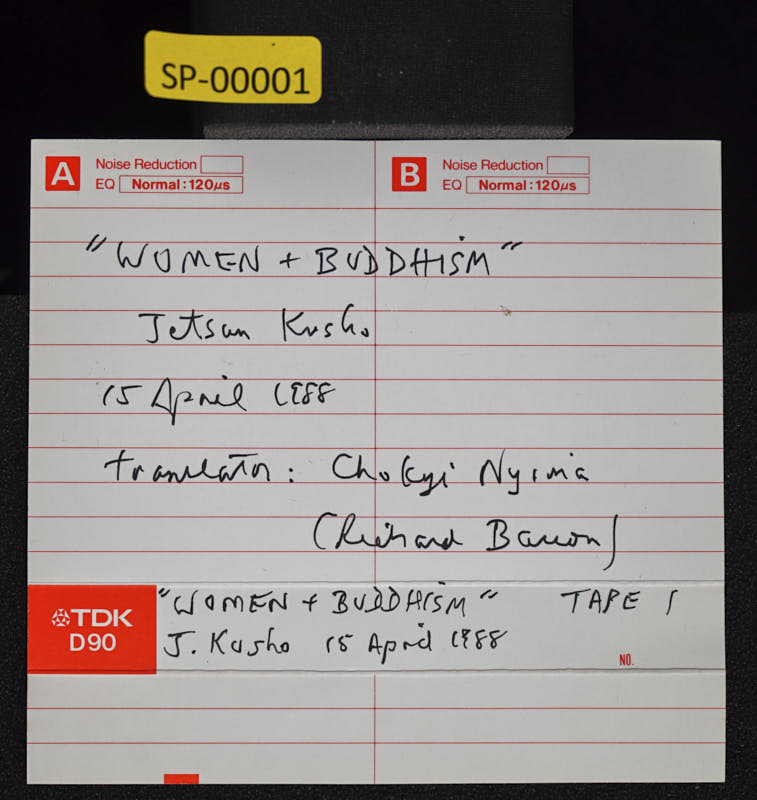 SP-00001
A Noise Reduction
EQ Normal: 120μs
B Noise Reduction
EQ Normal: 120μs
"WOMEN + BUDDHISM"
Jetsun Kusho
15 April 1988
translator: Chokyi Nyima
(Richard Barron)
TDK
D90
"WOMEN + BUDDHISM" TAPE 1
J. Kusho 15 April 1988
NO.